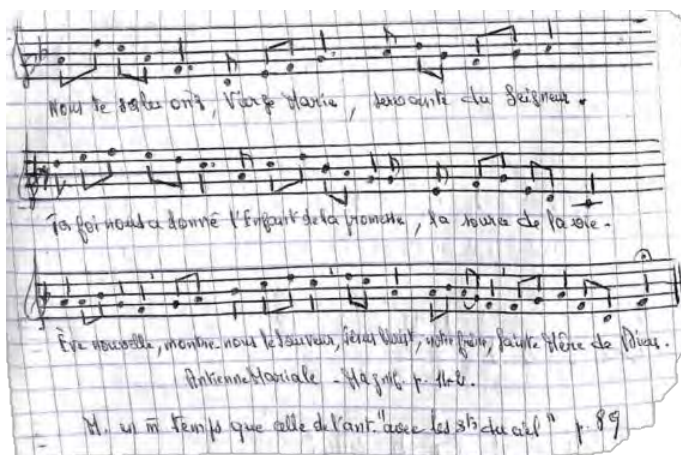 Nous te saluons, Vierge Marie, servante du Seigneur.
Ta foi nous a donné l'Enfant de la promesse, la source de la vie.
Ève nouvelle, montre-nous le Sauveur, Jésus Christ, notre frère, Sainte Mère de Dieu.
Antienne Mariale - Magnif. p.
M. en m̄ temps que celle de l'ant. "avec les du ciel" p. 89